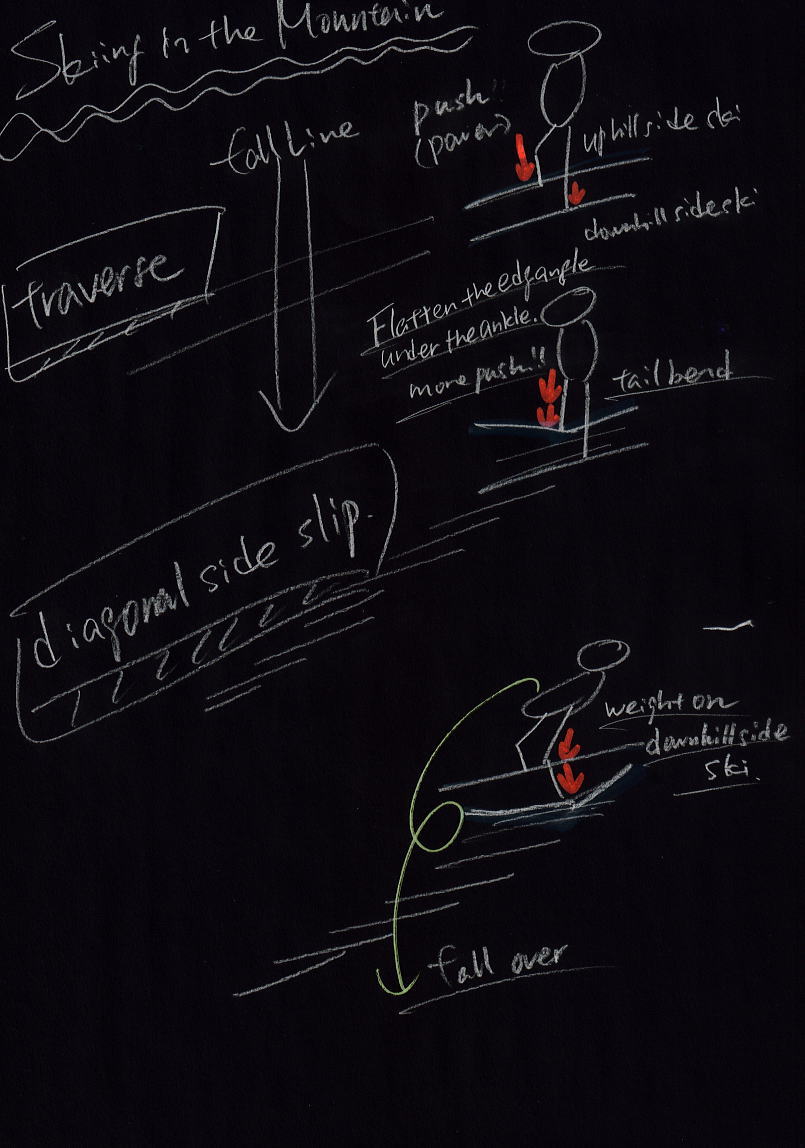 Skiing in the Mountain
fall Line
push!!
(power)
uphill side ski
downhill side ski
traverse
Flatten the edge angle
under the ankle.
more push!!
tail bend
diagonal side slip.
weight on
downhill side
ski.
fall over